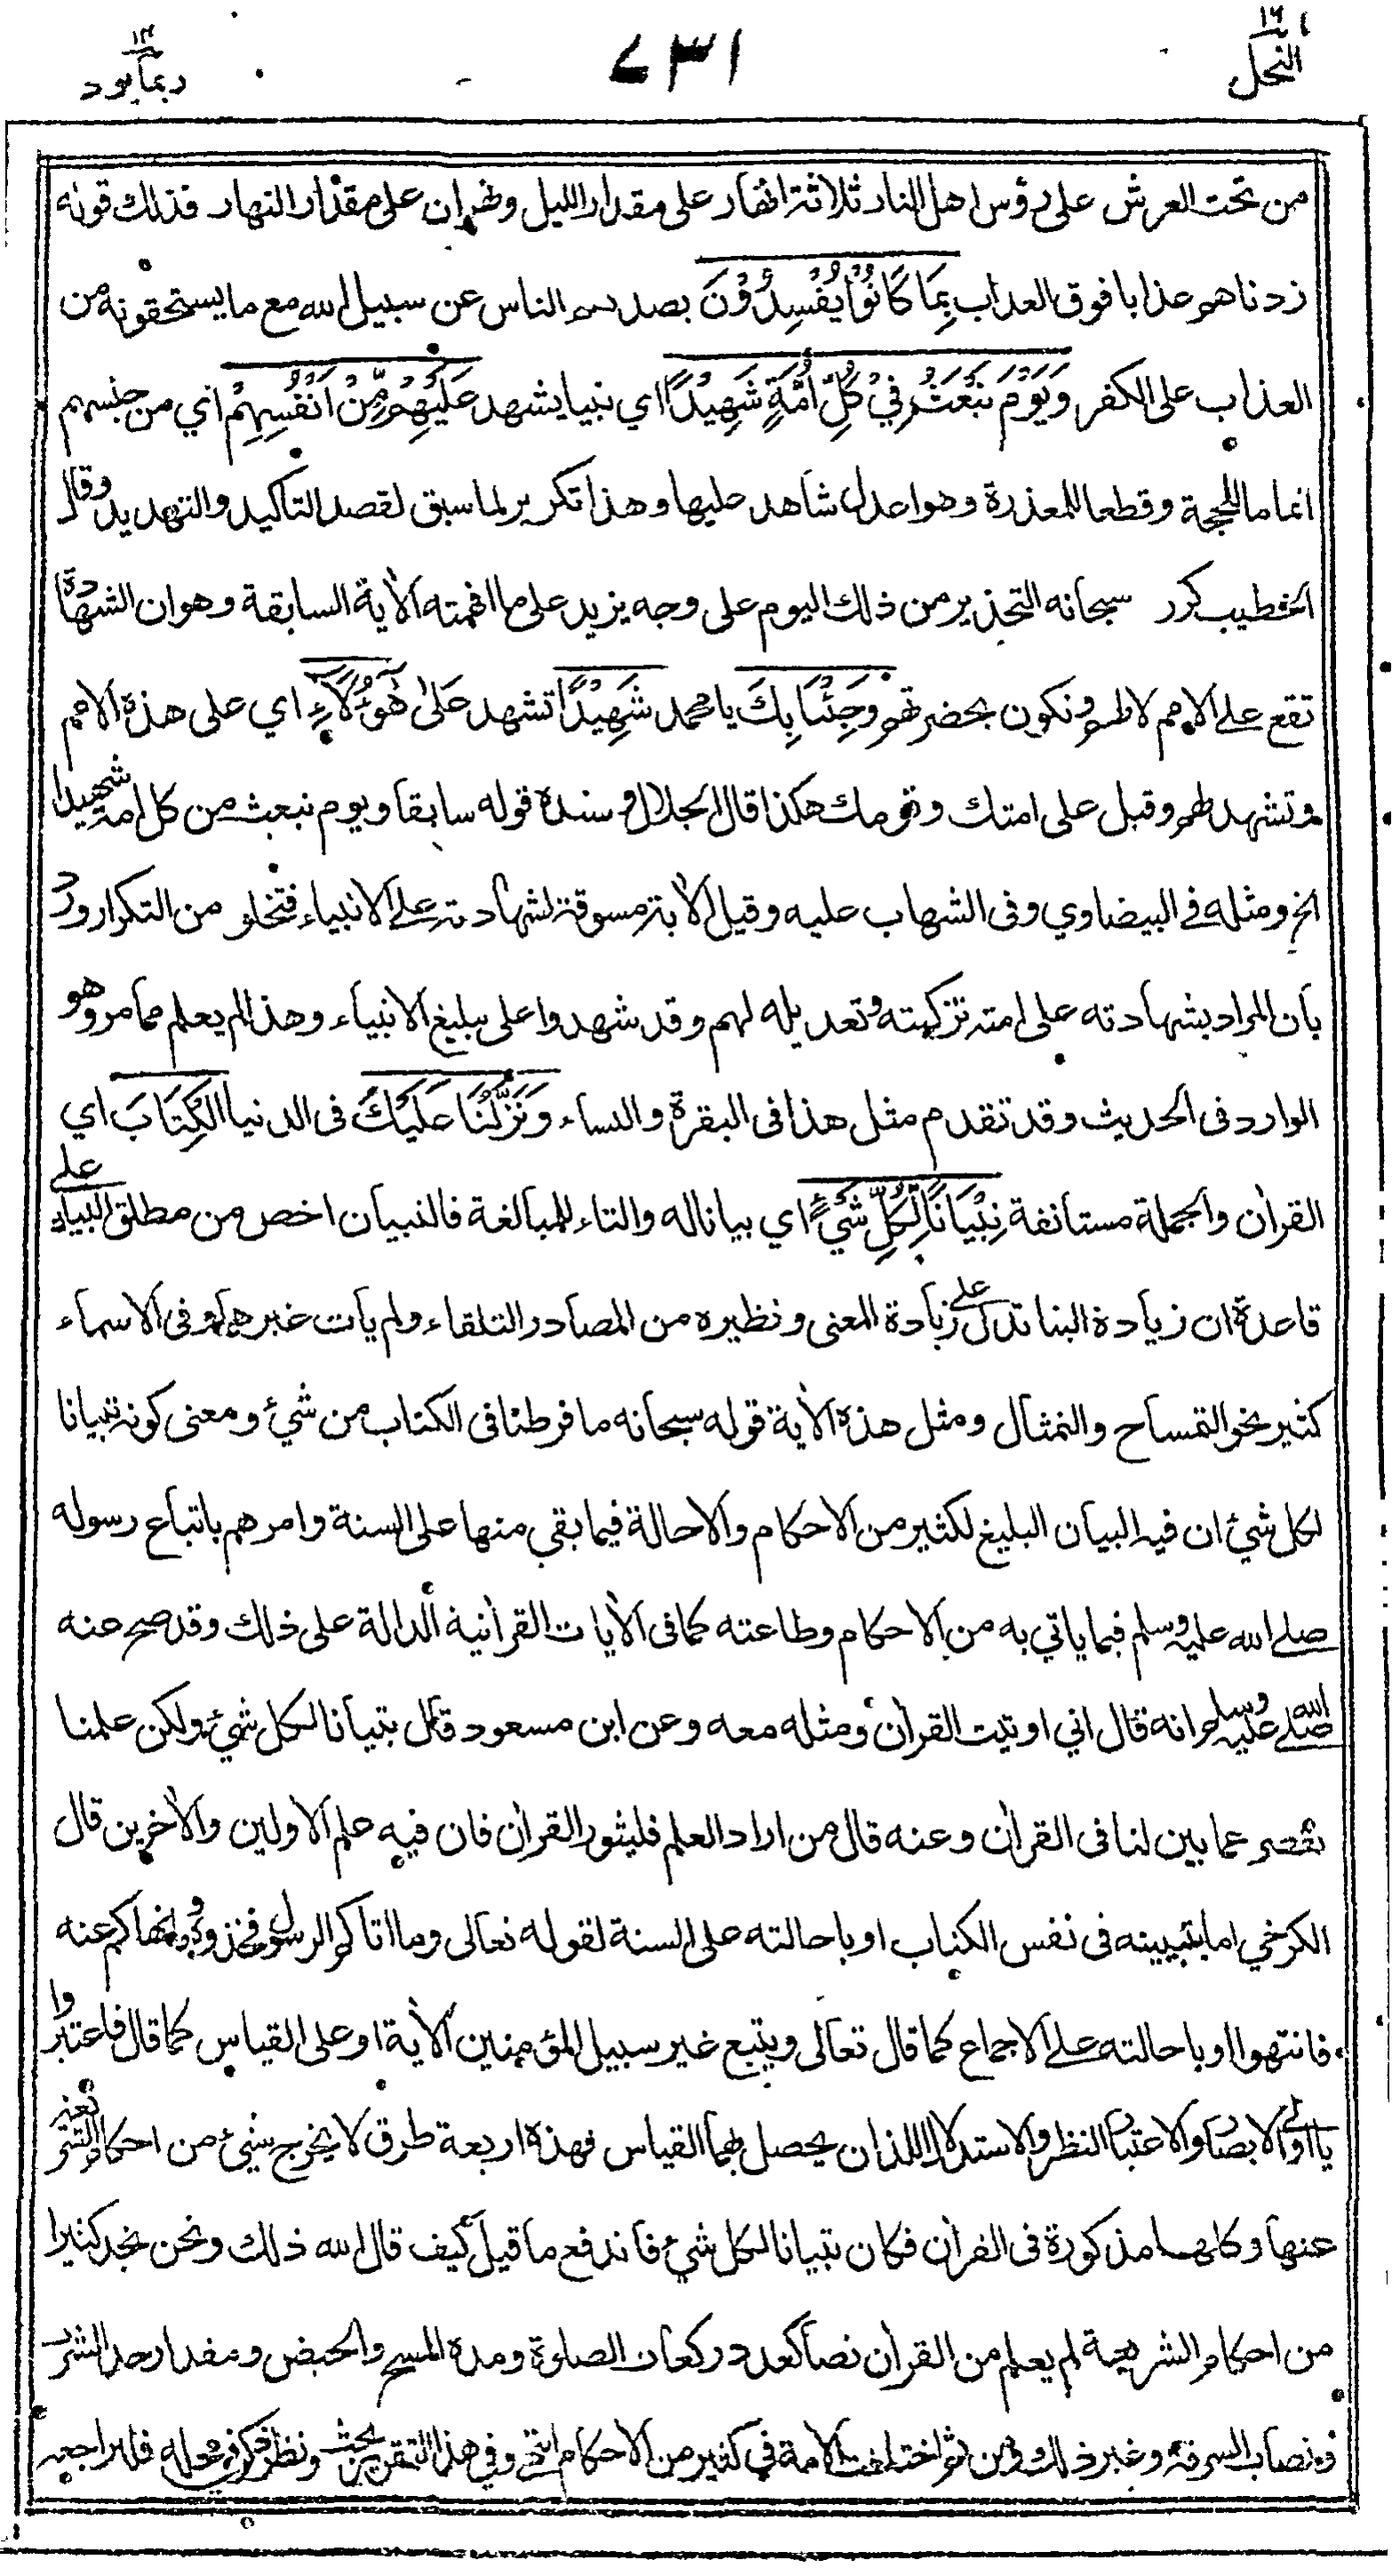 النحل ١٦
٧٣١
ربما يود ١٤
من تحت العرش على رؤس اهل النار ثلاثة انهار على مقدار الليل ونهران على مقدار النهار فذلك قوله
زدناهم عذابا فوق العذاب بِمَا كَانُوْا يُفْسِدُوْنَ بصدهم الناس عن سبيل الله مع ما يستحقونه من
العذاب على الكفر وَيَوْمَ نَبْعَثُ فِيْ كُلِّ اُمَّةٍ شَهِيْدًا اي نبيا يشهد عَلَيْهِمْ مِّنْ اَنْفُسِهِمْ اي من جنسهم
اتماما للحجة وقطعا للمعذرة وهو اعدل شاهد عليها وهذا تكرير لما سبق لقصد التاكيد والتهديد وقال
الخطيب كرر سبحانه التحذير من ذلك اليوم على وجه يزيد على ما افهمته الأية السابقة وهو ان الشهادة
تقع على الامم لا لهم وتكون بحضرتهم وَجِئْنَا بِكَ يا محمد شَهِيْدًا تشهد عَلٰى هٰٓؤُلَاۤءِ اي على هذه الامم
وتشهد لهم وقيل على امتك وقومك هكذا قال الجلال وسنده قوله سابقا ويوم نبعث من كل امة شهيدا
الخ ومثله في البيضاوي وفى الشهاب عليه وقيل الأية مسوقة لشهادته على الانبياء فتخلو من التكرار ورد
بان المراد بشهادته على امته تزكيته وتعديله لهم وقد شهدوا على تبليغ الانبياء وهذا لم يعلم مما مر وهو
الوارد فى الحديث وقد تقدم مثل هذا فى البقرة والنساء وَنَزَّلْنَا عَلَيْكَ فى الدنيا الْكِتَابَ اي
القرأن والجملة مستانفة تِبْيَانًا لِّكُلِّ شَيْءٍ اي بيانا له والتاء للمبالغة فالتبيان اخص من مطلق البيان على
قاعدة ان زيادة البنا تدل على زيادة المعنى ونظيره من المصادر التلقاء ولم يأت غيرهما وفى الاسماء
كثير نحو التمساح والتمثال ومثل هذه الأية قوله سبحانه ما فرطنا فى الكتاب من شيء ومعنى كونه تبيانا
لكل شيء ان فيه البيان البليغ لكثير من الاحكام والاحالة فيما بقي منها على السنة وامرهم باتباع رسوله
صلى الله عليه وسلم فيما ياتي به من الاحكام وطاعته كما فى الأيات القرأنية الدالة على ذلك وقد صح عنه
صلى الله عليه وسلم انه قال اني اوتيت القرأن ومثله معه وعن ابن مسعود قال تبيانا لكل شيء ولكن علمنا
تقصر عما بين لنا فى القرأن وعنه قال من اراد العلم فليثور القرأن فان فيه علم الاولين والأخرين قال
الكرخي اما بتبيينه فى نفس الكتاب او باحالته على السنة لقوله تعالى وما اتاكم الرسول فخذوه وما نهاكم عنه
فانتهوا او باحالته على الاجماع كما قال تعالى ويتبع غير سبيل المؤمنين الأية او على القياس كما قال فاعتبروا
يا اولى الابصار والاعتبار النظر والاستدلال اللذان يحصل بهما القياس فهذه اربعة طرق لا يخرج شيء من احكام الشريعة
عنها وكلها مذكورة فى القرأن فكان تبيانا لكل شيء فاندفع ما قيل كيف قال الله ذلك ونحن نجد كثيرا
من احكام الشريعة لم يعلم من القرأن نصا كعدد ركعات الصلوة ومدة المسح والحيض ومقدار حد الشرب
ونصاب السرقة وغير ذلك ومن ثم اختلفت الامة في كثير من الاحكام انتهى وفي هذا التقرير بحث ونظر ذكر في محله فليراجعه